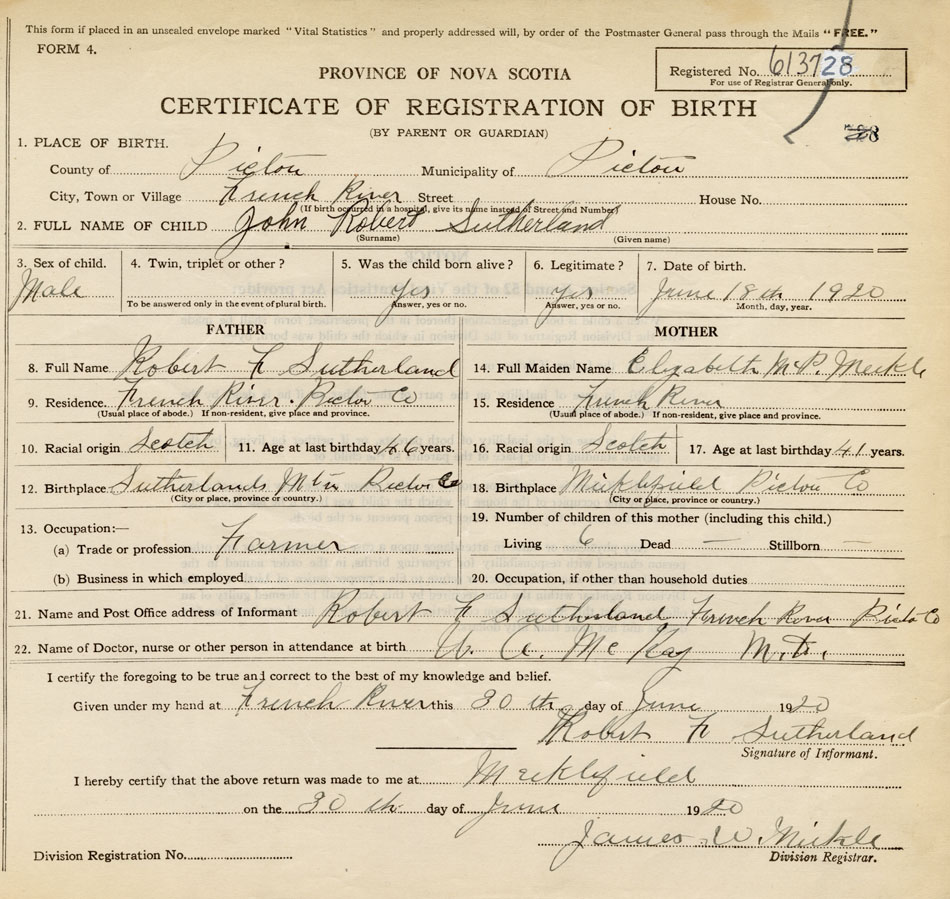 This form if placed in an unsealed envelope marked "Vital Statistics" and properly addressed will, by order of the Postmaster General pass through the Mails "FREE."
FORM 4.
Registered No. 613728
For use of Registrar General only.
PROVINCE OF NOVA SCOTIA
CERTIFICATE OF REGISTRATION OF BIRTH
(BY PARENT OR GUARDIAN)
1. PLACE OF BIRTH.
County of Pictou Municipality of Pictou
City, Town or Village French River Street House No.
(If birth occurred in a hospital, give its name instead of Street and Number)
2. FULL NAME OF CHILD John Robert Sutherland
(Surname) (Given name)
3. Sex of child. 4. Twin, triplet or other? 5. Was the child born alive? 6. Legitimate? 7. Date of birth.
Male Yes Yes June 18th 1920
To be answered only in the event of plural birth. Answer, yes or no. Answer, yes or no. Month, day, year.
FATHER MOTHER
8. Full Name Robert F Sutherland 14. Full Maiden Name Elizabeth McP. Meikle
9. Residence. French River. Pictou Co 15. Residence French River
(Usual place of abode.) If non-resident, give place and province. (Usual place of abode.) If non-resident, give place and province.
10. Racial origin Scotch 11. Age at last birthday 46 years. 16. Racial origin Scotch 17. Age at last birthday 41 years.
12. Birthplace Sutherlands Mtn Pictou Co 18. Birthplace Meiklefield Pictou Co
(City or place, province or country.) (City or place, province or country.)
13. Occupation:— 19. Number of children of this mother (including this child.)
(a) Trade or profession Farmer Living 6 Dead — Stillborn —
(b) Business in which employed 20. Occupation, if other than household duties
21. Name and Post Office address of Informant Robert F Sutherland French River Pictou Co
22. Name of Doctor, nurse or other person in attendance at birth A. McKay M.D.
I certify the foregoing to be true and correct to the best of my knowledge and belief.
Given under my hand at French River this 30 th day of June 1920
Robert F Sutherland
Signature of Informant.
I hereby certify that the above return was made to me at Meiklefield
on the 30 th day of June 1920
James W Meikle
Division Registration No. Division Registrar.